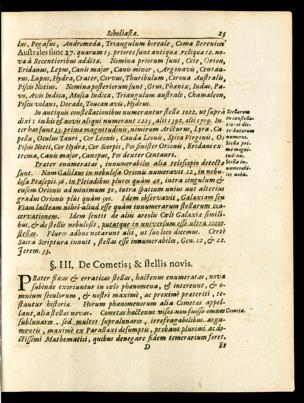 Scholiastæ. 25
lus, Pegasus, Andromeda, Triangulum boreale, Coma Berenices
Australes sunt 27. quarum 15. priores sunt antiquæ reliquæ 12. no-
væ à Recentioribus additæ. Nomina priorum sunt, Cete, Orion,
Eridanus, Lepus, Canis major, Canis minor, Argonavis, Centau-
rus, Lupus, Hydra, Crater, Corvus, Thuribulum, Corona Australis,
Piscis Notius. Nomina posteriorum sunt, Grus, Phœnix, Indus, Pa-
vo, Avis Indica, Musca Indica, Triangulum australe, Chamæleon,
Piscis volans, Dorado, Toucan avis, Hydrus.
In antiquis constellationibus numerantur stellæ 1022, ut supra
dixi; in his aliqui numerant 1225; alii 1392, alii 1709. In-
ter has sunt 15. primæ magnitudinis, nimirum Arcturus, Lyra, Ca-
pella, Oculus Tauri, Cor Leonis, Cauda Leonis, Spica Virginis, Os
Piscis Notii, Cor Hydræ, Cor Scorpii, Pes sinister Orionis, Eridani ex-
trema, Canis major, Canopus, Pes dexter Centauri.
Præter enumeratas, innumerabiles aliæ telescopio detectæ
sunt. Nam Galilæus in nebulosa Orionis numeravit 12, in nebu-
losa Præsepi 36, in Pleiadibus plures quàm 40, intra cingulum &
ensem Orionis ad minimum 80, intra spatium unius aut alterius
gradus Orionis plus quàm 500. Idem observavit, Galaxiam seu
viam lacteam nihil aliud esse quàm innumerarum stellarum coa-
cervationem. Idem sentit de aliis areolis Cœli Galaxiæ simili-
bus, & de stellis nebulosis, putatque in universum esse ultra 10000.
stellas. Plures adhuc notarunt alii, ut suo loco dicemus. Certè
Sacra Scriptura innuit, stellas esse innumerabiles, Gen. 12, & 22.
Jerem. 33.
Stellarum
in constella-
numerus.
Stellæ pri-
mæ magni-
tudinis.
Stellæ in-
numerabi-
les nobis.
§. III. De Cometis; & stellis novis.
PRæter fixas & erraticas stellas, hactenus enumeratas, nova
subinde exoriuntur in cœlo phænomena, & intereunt, & o-
mnium seculorum, & nostri maximè, ac proximè præteriti, te-
stantur historiæ. Horum phænomenorum alia Cometas appel-
lant, alia stellas novas. Cometas hactenus visos non fuisse omnes
sublunares, sed multos supralunares, irrefragabilibus argu-
mentis, maximè ex Parallaxi desumptis, probant plurimi ac do-
ctissimi Mathematici, quibus denegare fidem temerarium foret.
Cometæ.
D Et